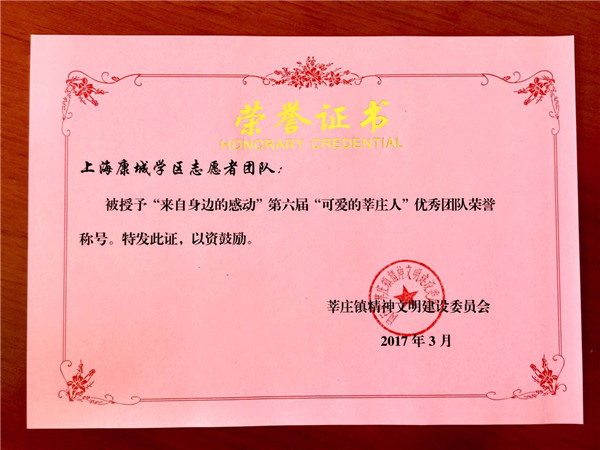 荣誉证书
HONORARY CREDENTIAL
上海康城学区志愿者团队：
被授予“来自身边的感动”第六届“可爱的莘庄人”优秀团队荣誉
称号。特发此证，以资鼓励。
莘庄镇精神文明建设委员会
2017 年 3 月